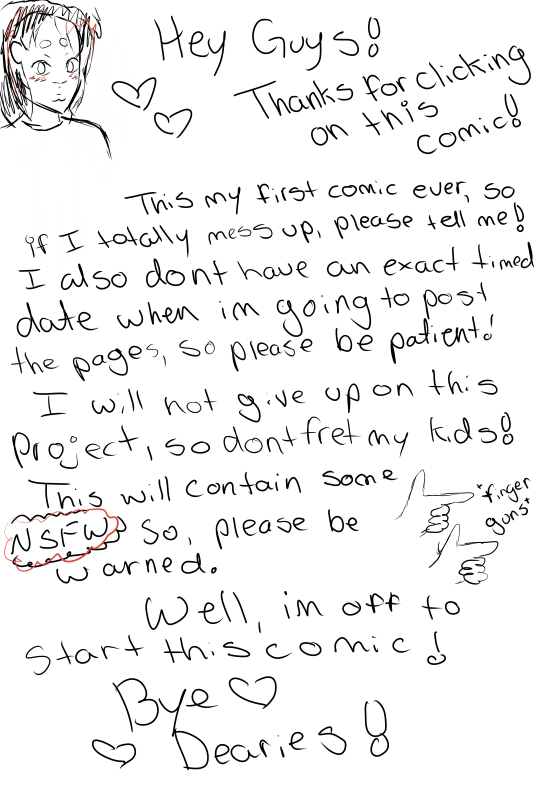 Hey Guys!
Thanks for clicking
on this
comic!
This my first comic ever, so
if I totally mess up, please tell me!
I also dont have an exact timed
date when im going to post
the pages, so please be patient!
I will not give up on this
Project, so dont fret my kids!
This will contain some
*finger
guns*
NSFW so, please be
warned.
Well, im off to
Start this comic!
Bye
Dearies!